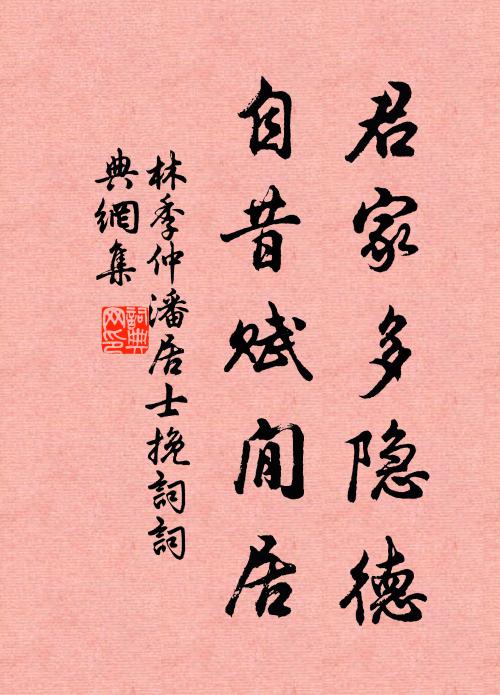 君家多隐德
自昔赋闲居
林季仲潘居士挽詞詞
典網集
詞典
网印